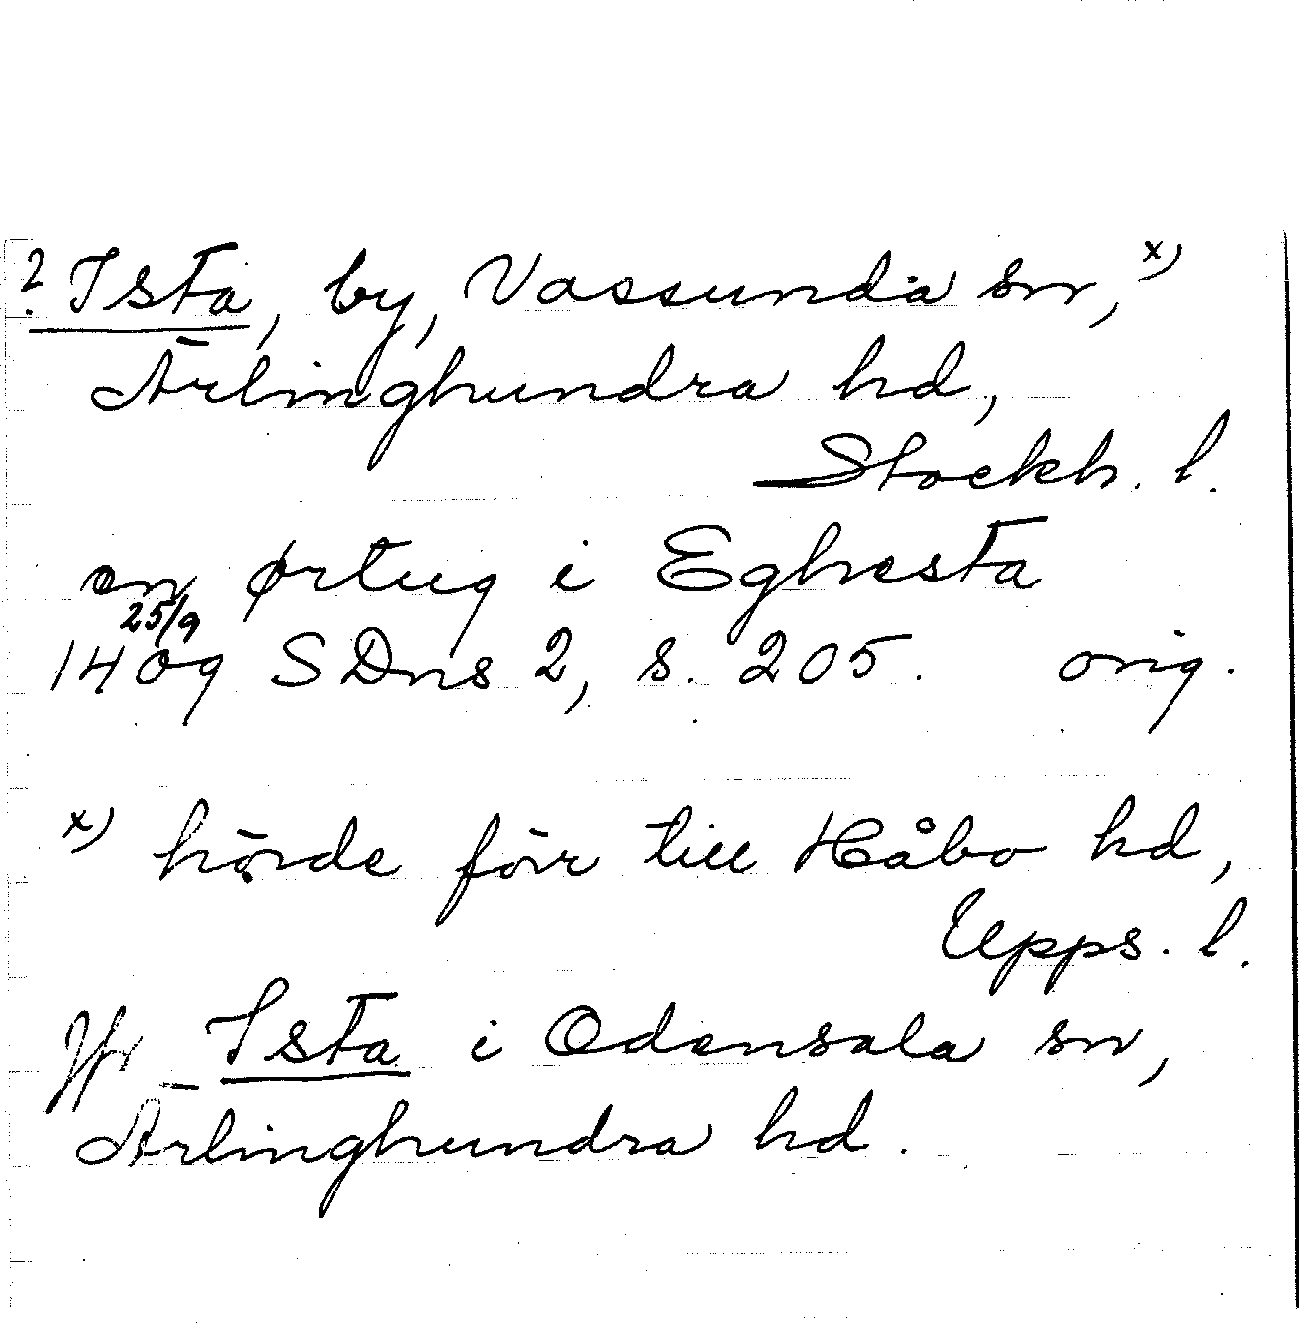 ? Ista, by, Vassunda sn, x)
Ärlinghundra hd,
Stockh. l.
en ørtug i Eghesta
25/9
1409 SDns 2, s. 205. orig.
x) hörde förr till Håbo hd,
Upps. l.
Jfr Ista i Odensala sn,
Ärlinghundra hd.